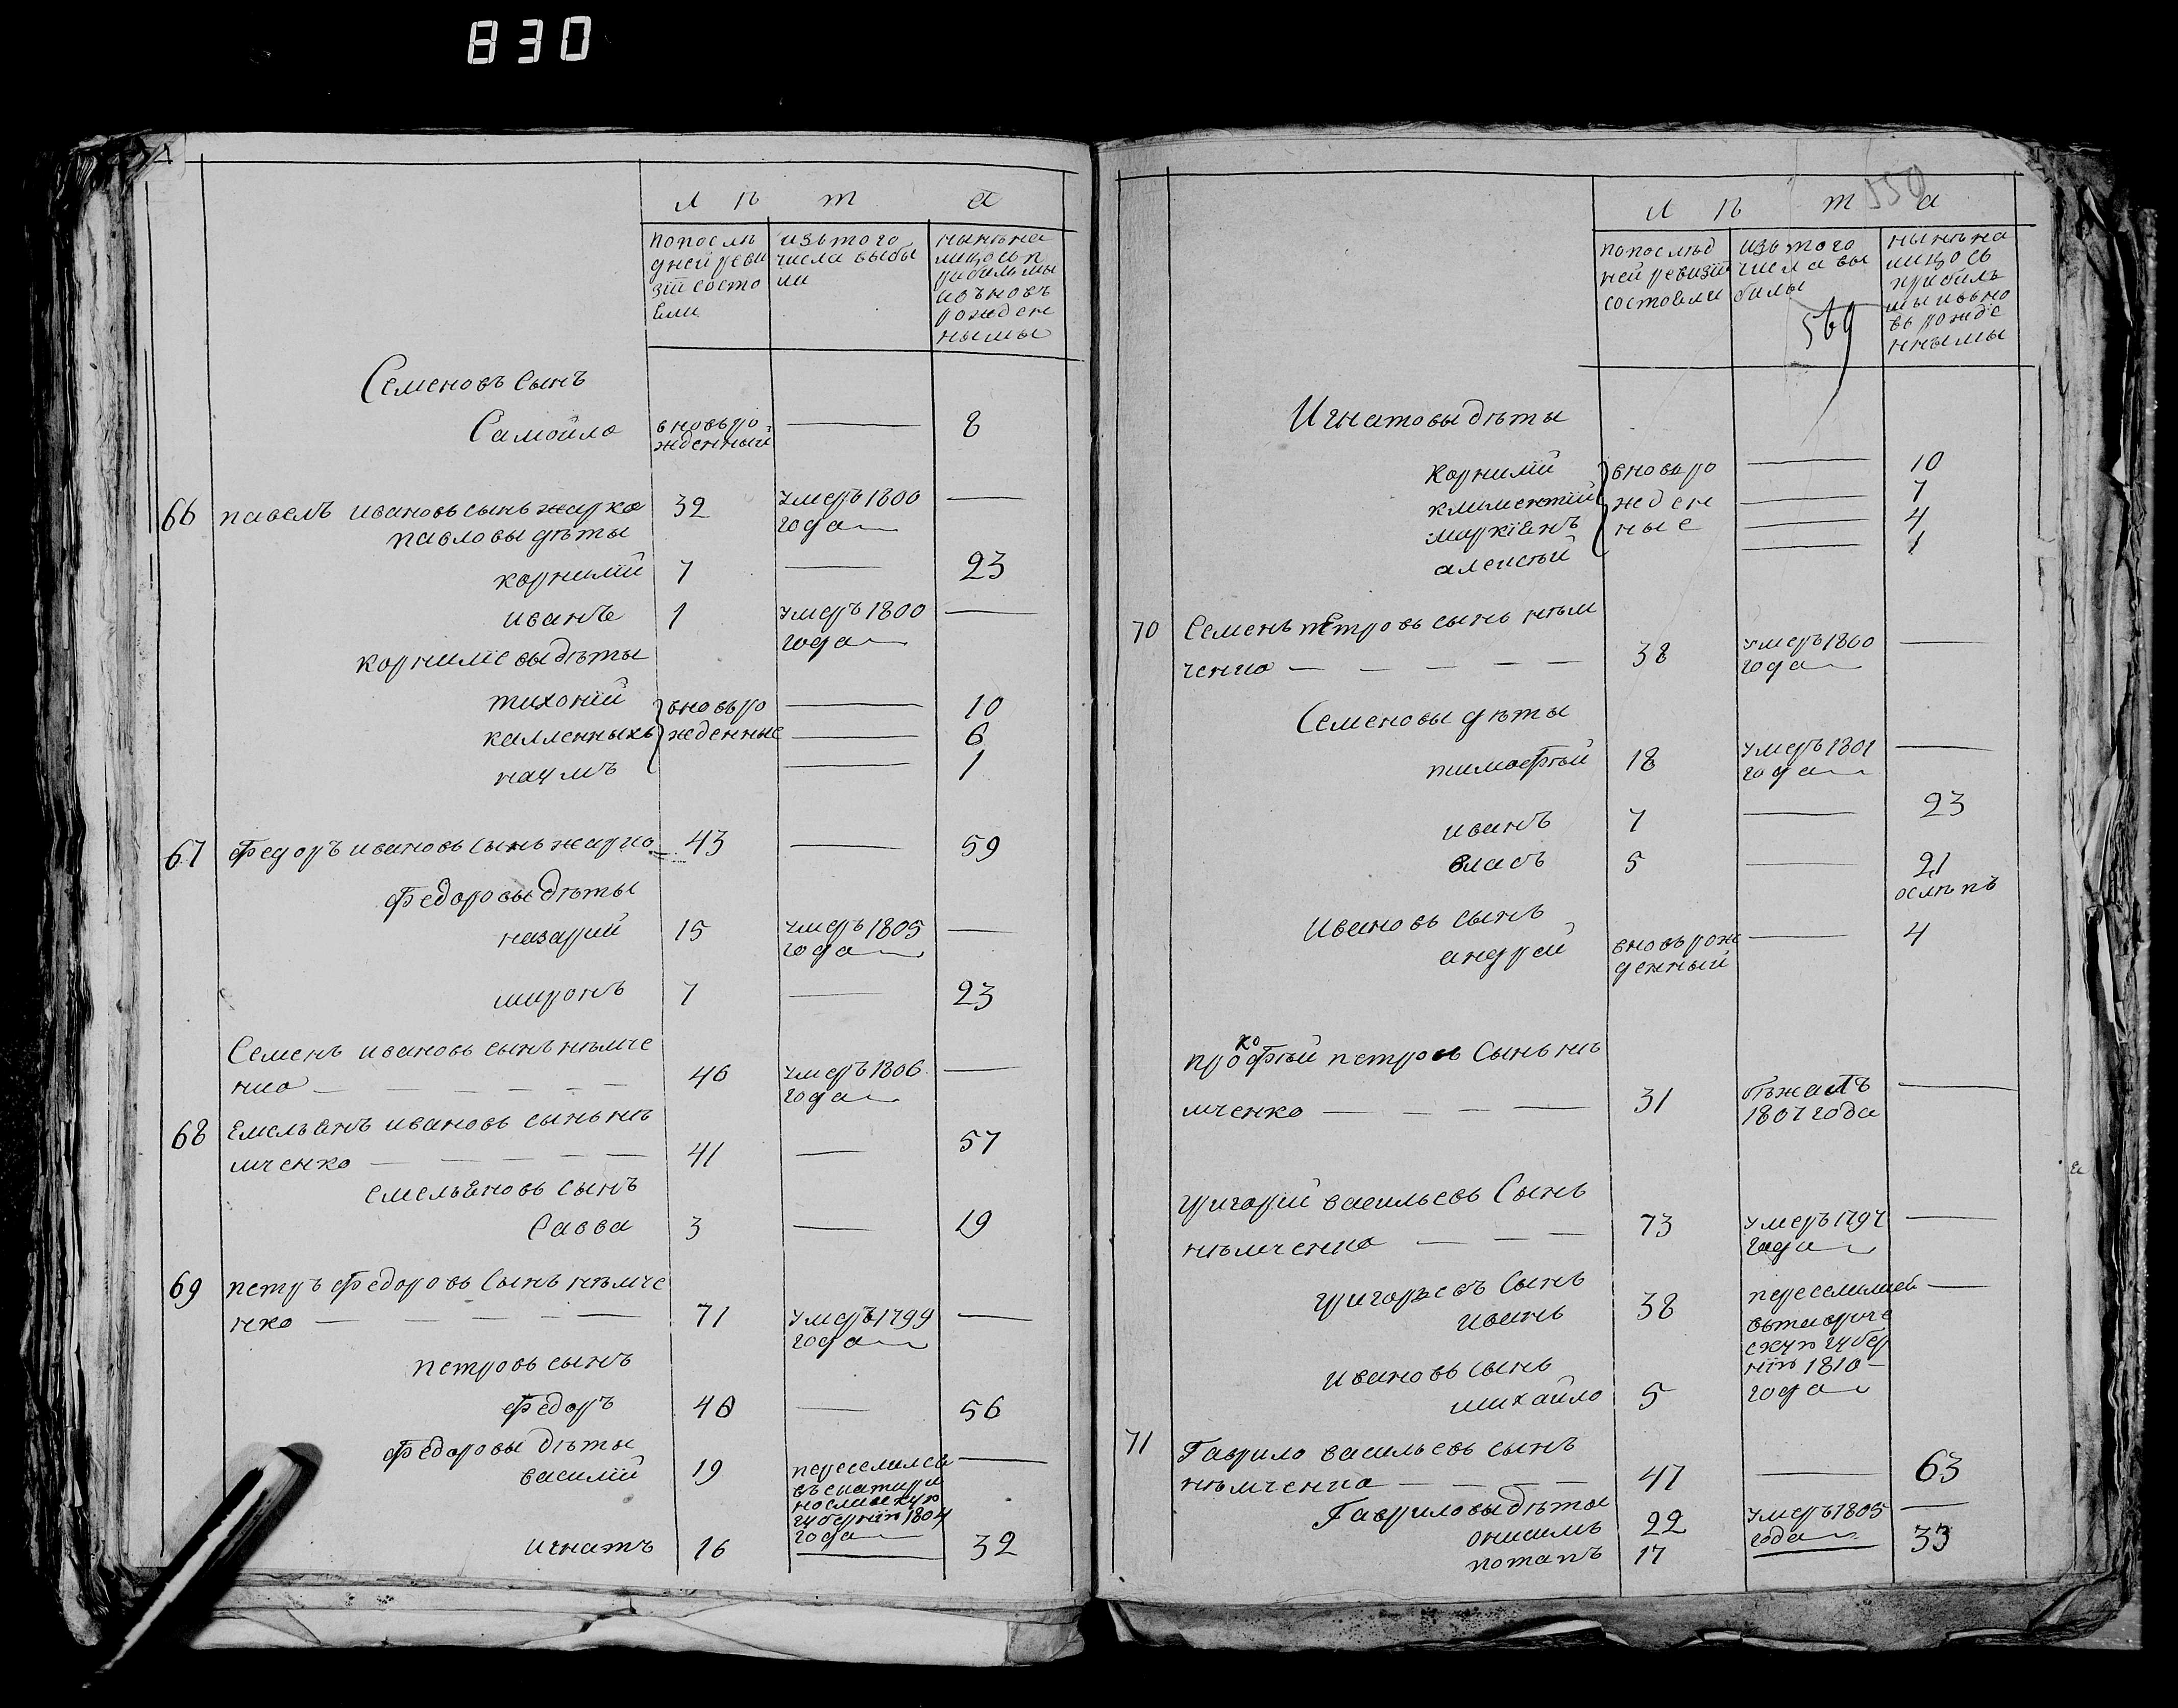 830
Л ѣ т а
попослѣ
дней реви
зіи состо
яли
изътого
числа выбы
ли
нынѣна
лицо сп
рибылымы
ивъновъ
рожден
нымы
Семеновъ сынъ
Самойло вновьро
жденный — 8
66 павелъ ивановъ сынъ жарко 32 умеръ 1800
года —
павловы дѣты
корнилій 7 — 23
иванъ 1 умеръ 1800
года —
корниліевы дѣты
тихоній вновьро — 10
калленныкъ жденные — 6
наумъ — 1
67 Федоръ ивановъ сынъ жарко 43 — 59
Федоровы дѣты
назарий 15 умеръ 1805
года —
миронъ 7 — 23
Семенъ ивановъ сынъ нѣмче
нко — 46 умеръ 1806
года —
68 Емельянъ ивановъ сынъ нѣ
мченко — 41 — 57
емельяновъ сынъ
Савва 3 — 19
69 петръ Федоровъ сынъ нѣмче
нко — 71 умеръ 1799
года —
петровъ сынъ
Федоръ 40 — 56
Федоровы дѣты
василій 19 переселился
въ екатири
нославскую
губернію 1804
года —
игнатъ 16 — 32
550
Л ѣ т а
попослѣд
ней ревизіи
состояли
изътого
числа вы
былы
569
нынѣна
лицо съ
прибылы
мы ивьно
вь рожде
ннымы
Игнатовы дѣты
Корнилій вновьро — 10
климентий жден — 7
маркіянъ ные — 4
алексѣй — 1
70 Семенъ петровъ сынъ нѣм
ченко — 38 умеръ 1800
года —
Семеновы дѣты
тимофѣй 18 умеръ 1801
года —
иванъ 7 — 23
власъ 5 — 21
ослѣпъ
Ивановъ сынъ
андрей вновьрож
денный — 4
ко
профѣй петровъ Сынъ нѣ
мченко — 31 бѣжалъ
1807 года —
григорій васильевъ Сынъ
нѣмченко — 73 умеръ 1797
года —
григорьевъ Сынъ
иванъ 38 переселилися —
вътавриче
скую губер
нію 1810
года
ивановъ сынъ
михайло 5
71 Гаврило васильевъ сынъ
нѣмченко — 47 — 63
Гавриловы дѣты
онисимъ 22 умеръ 1805
года —
потапъ 17 — 33